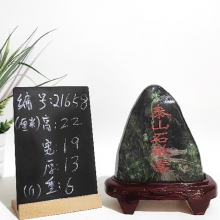 编号:21658
(厘米)高:22
宽:19
厚:13
(斤)重:6
泰山石敢當